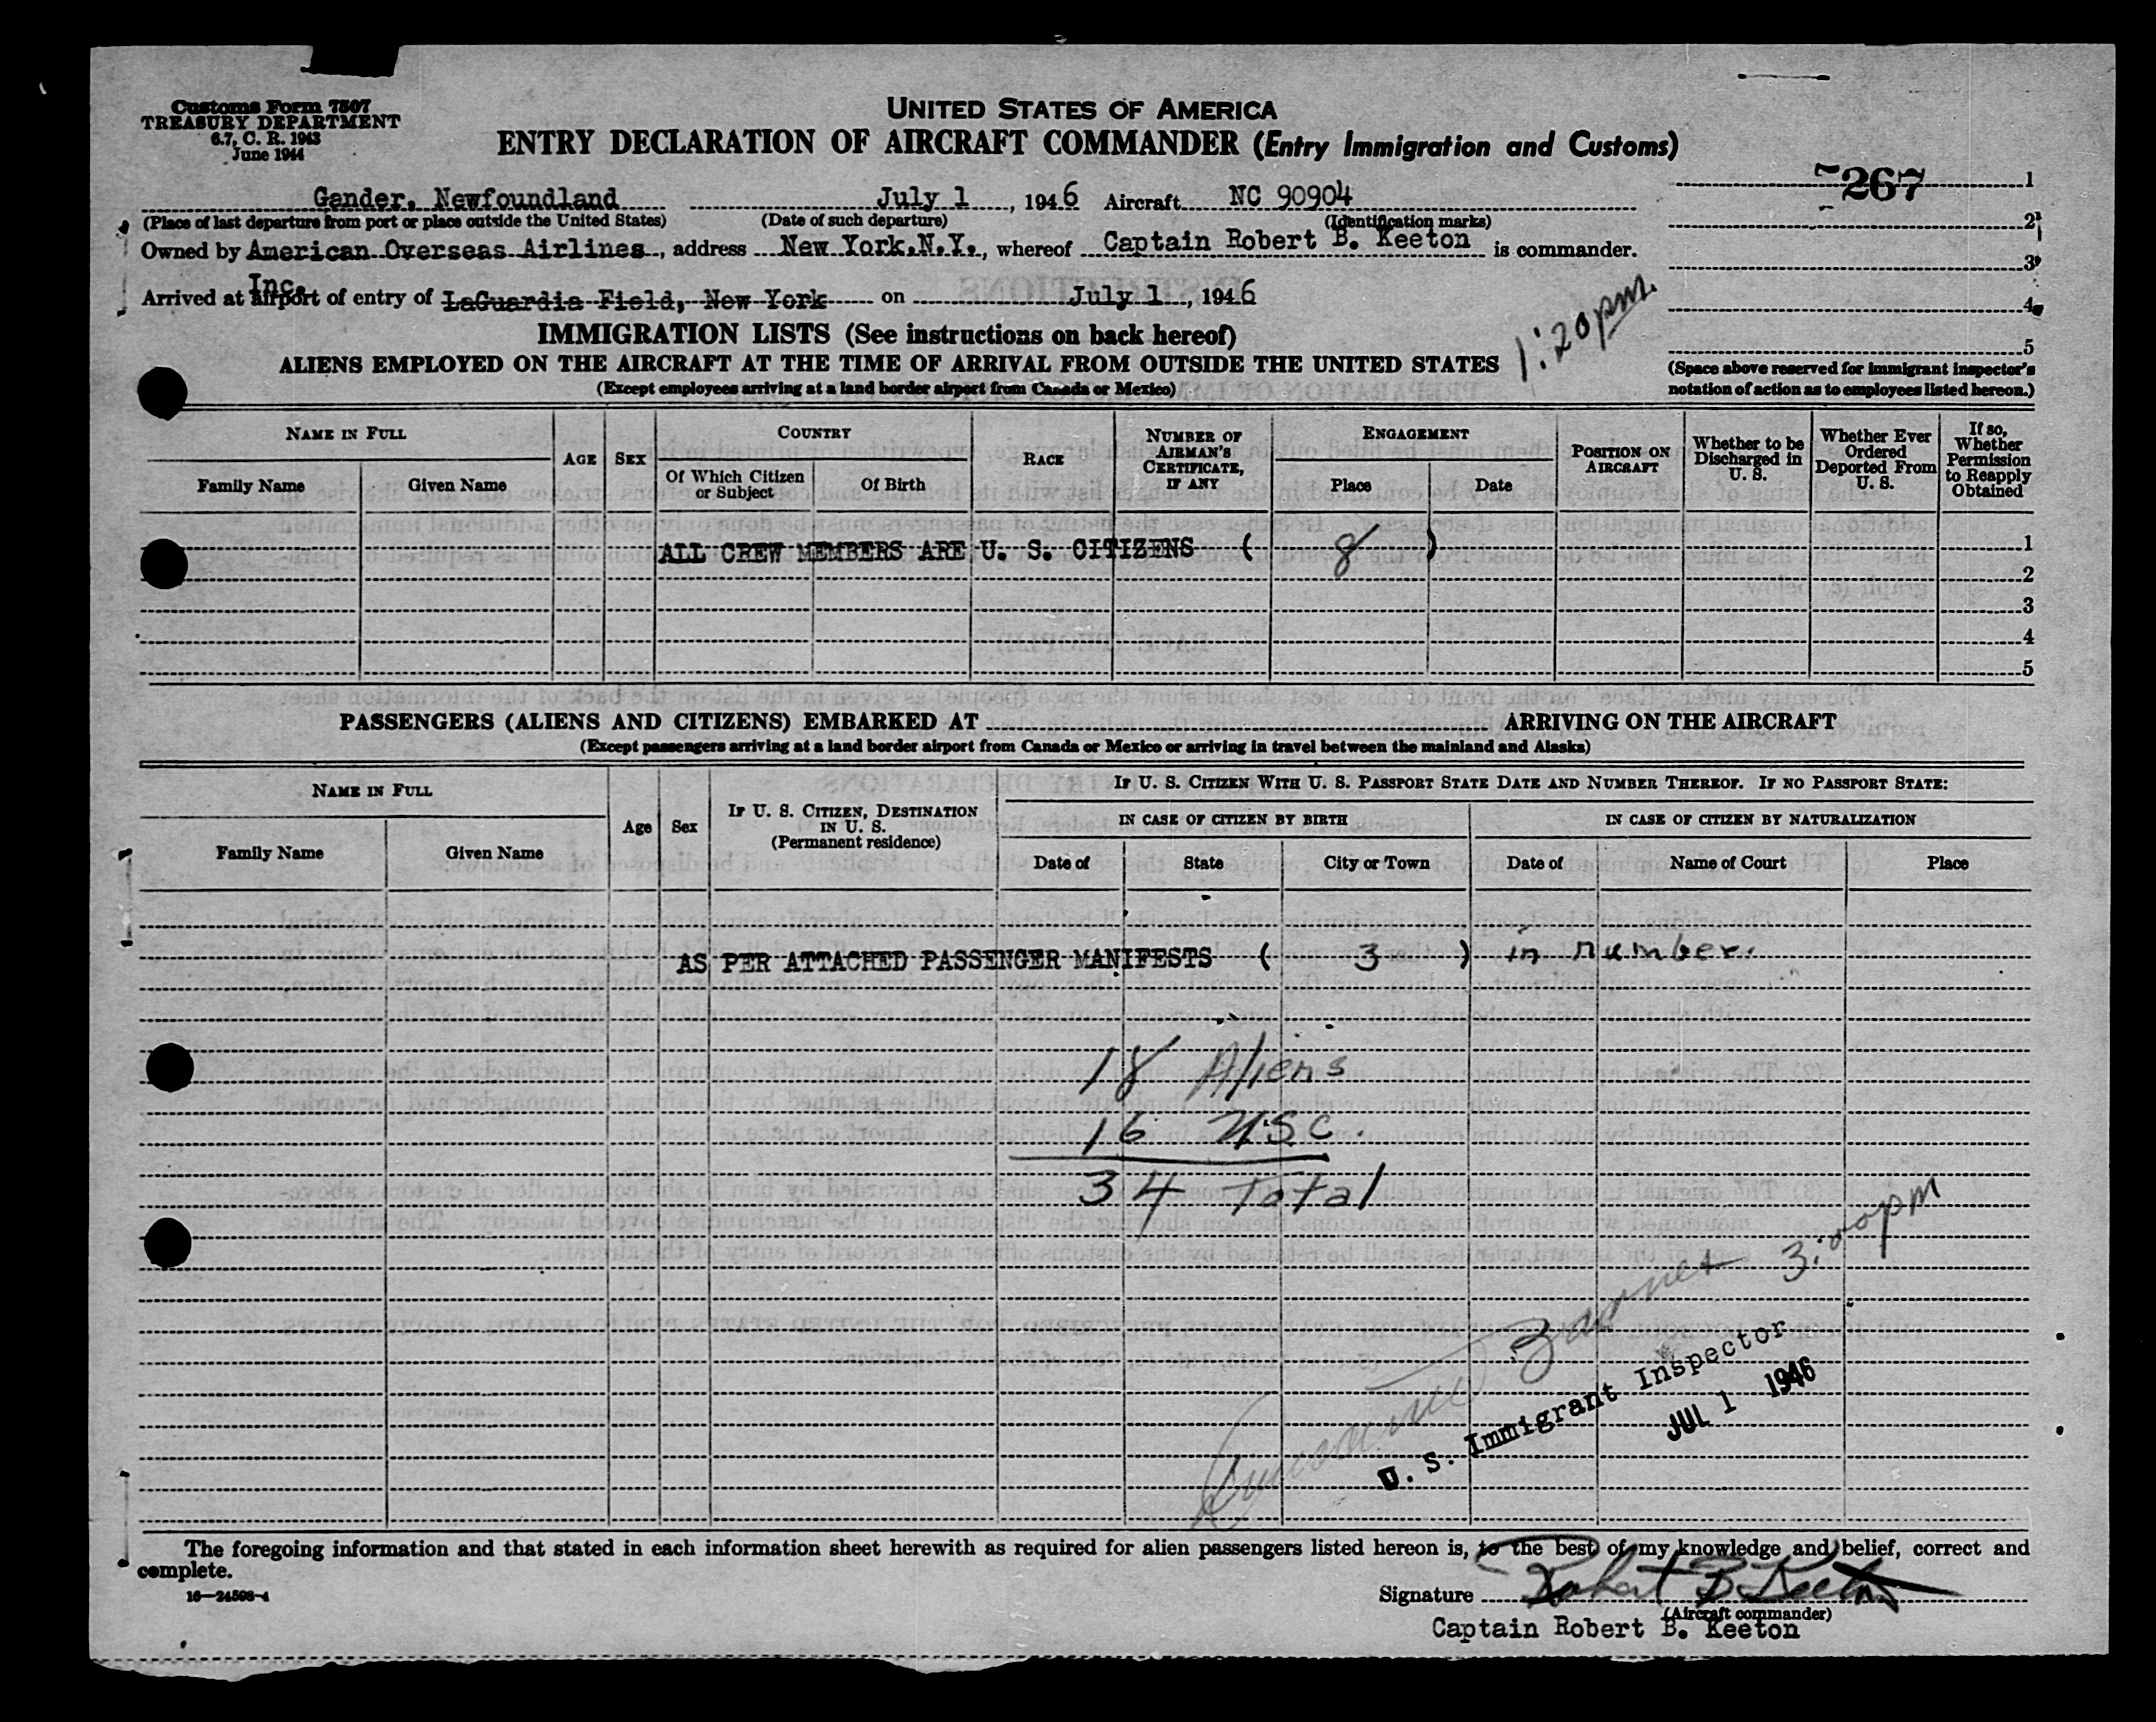 Customs Form 7507
TREASURY DEPARTMENT
6.7, C. R. 1943
June 1944
UNITED STATES OF AMERICA
ENTRY DECLARATION OF AIRCRAFT COMMANDER (Entry Immigration and Customs)
267 1
Gander, Newfoundland July 1, 1946 Aircraft NC 90904
(Place of last departure from port or place outside the United States) (Date of such departure) (Identification marks)
2
Owned by American Overseas Airlines, address New York, N.Y., whereof Captain Robert B. Keeton is commander.
3
Inc.
Arrived at airport of entry of LaGuardia Field, New York on July 1, 1946
4
1:20 pm.
5
IMMIGRATION LISTS (See instructions on back hereof)
ALIENS EMPLOYED ON THE AIRCRAFT AT THE TIME OF ARRIVAL FROM OUTSIDE THE UNITED STATES
(Except employees arriving at a land border airport from Canada or Mexico)
(Space above reserved for immigrant inspector's
notation of action as to employees listed hereon.)
NAME IN FULL
Family Name Given Name
AGE SEX
COUNTRY
Of Which Citizen or Subject Of Birth
RACE
NUMBER OF AIRMAN'S CERTIFICATE, IF ANY
ENGAGEMENT
Place Date
POSITION ON AIRCRAFT
Whether to be Discharged in U. S.
Whether Ever Ordered Deported From U. S.
If so, Whether Permission to Reapply Obtained
ALL CREW MEMBERS ARE U. S. CITIZENS ( 8 ) 1
2
3
4
5
PASSENGERS (ALIENS AND CITIZENS) EMBARKED AT ARRIVING ON THE AIRCRAFT
(Except passengers arriving at a land border airport from Canada or Mexico or arriving in travel between the mainland and Alaska)
NAME IN FULL
Family Name Given Name
Age Sex
IF U. S. CITIZEN, DESTINATION IN U. S.
(Permanent residence)
IF U. S. CITIZEN WITH U. S. PASSPORT STATE DATE AND NUMBER THEREOF. IF NO PASSPORT STATE:
IN CASE OF CITIZEN BY BIRTH IN CASE OF CITIZEN BY NATURALIZATION
Date of State City or Town Date of Name of Court Place
AS PER ATTACHED PASSENGER MANIFESTS ( 3 ) in number.
18 Aliens
16 USC.
34 Total
3:00 pm
U. S. Immigrant Inspector
JUL 1 1946
The foregoing information and that stated in each information sheet herewith as required for alien passengers listed hereon is, to the best of my knowledge and belief, correct and
complete.
16—24598-4
Signature Robert B Keeton
(Aircraft commander)
Captain Robert B. Keeton